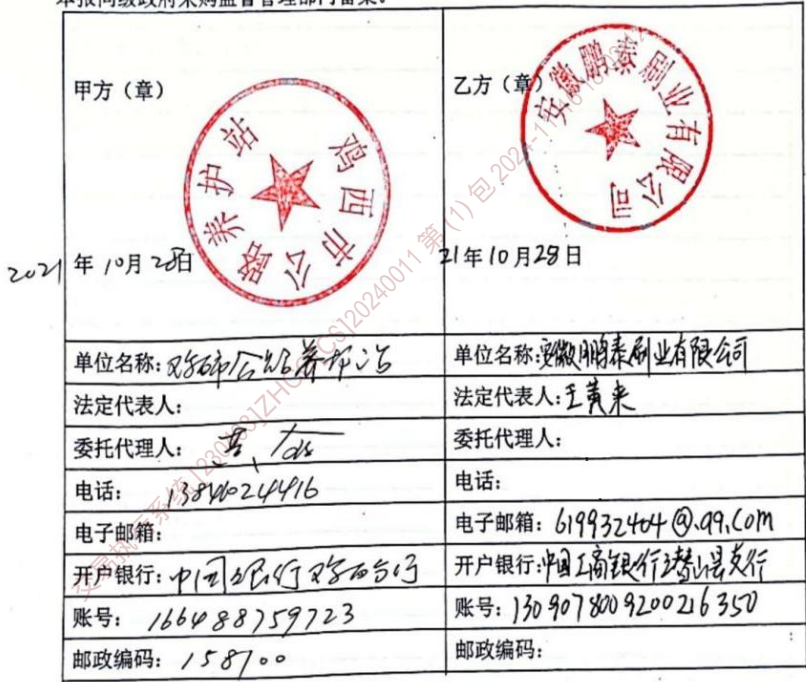 本报同级政府采购监督管理部门备案。
甲方（章）
鸡西市公路养护站
2021年10月28日
乙方（章）
安徽鹏泰刷业有限公司
21年10月28日
单位名称：鸡西市公路养护站
单位名称：安徽鹏泰刷业有限公司
法定代表人：
法定代表人：王黄来
委托代理人：
委托代理人：
电话：13846024416
电话：
电子邮箱：
电子邮箱：619932404@.qq.com
开户银行：中国银行鸡西分行
开户银行：中国工商银行潜山县支行
账号：166488759723
账号：1309078009200216350
邮政编码：158100
邮政编码：